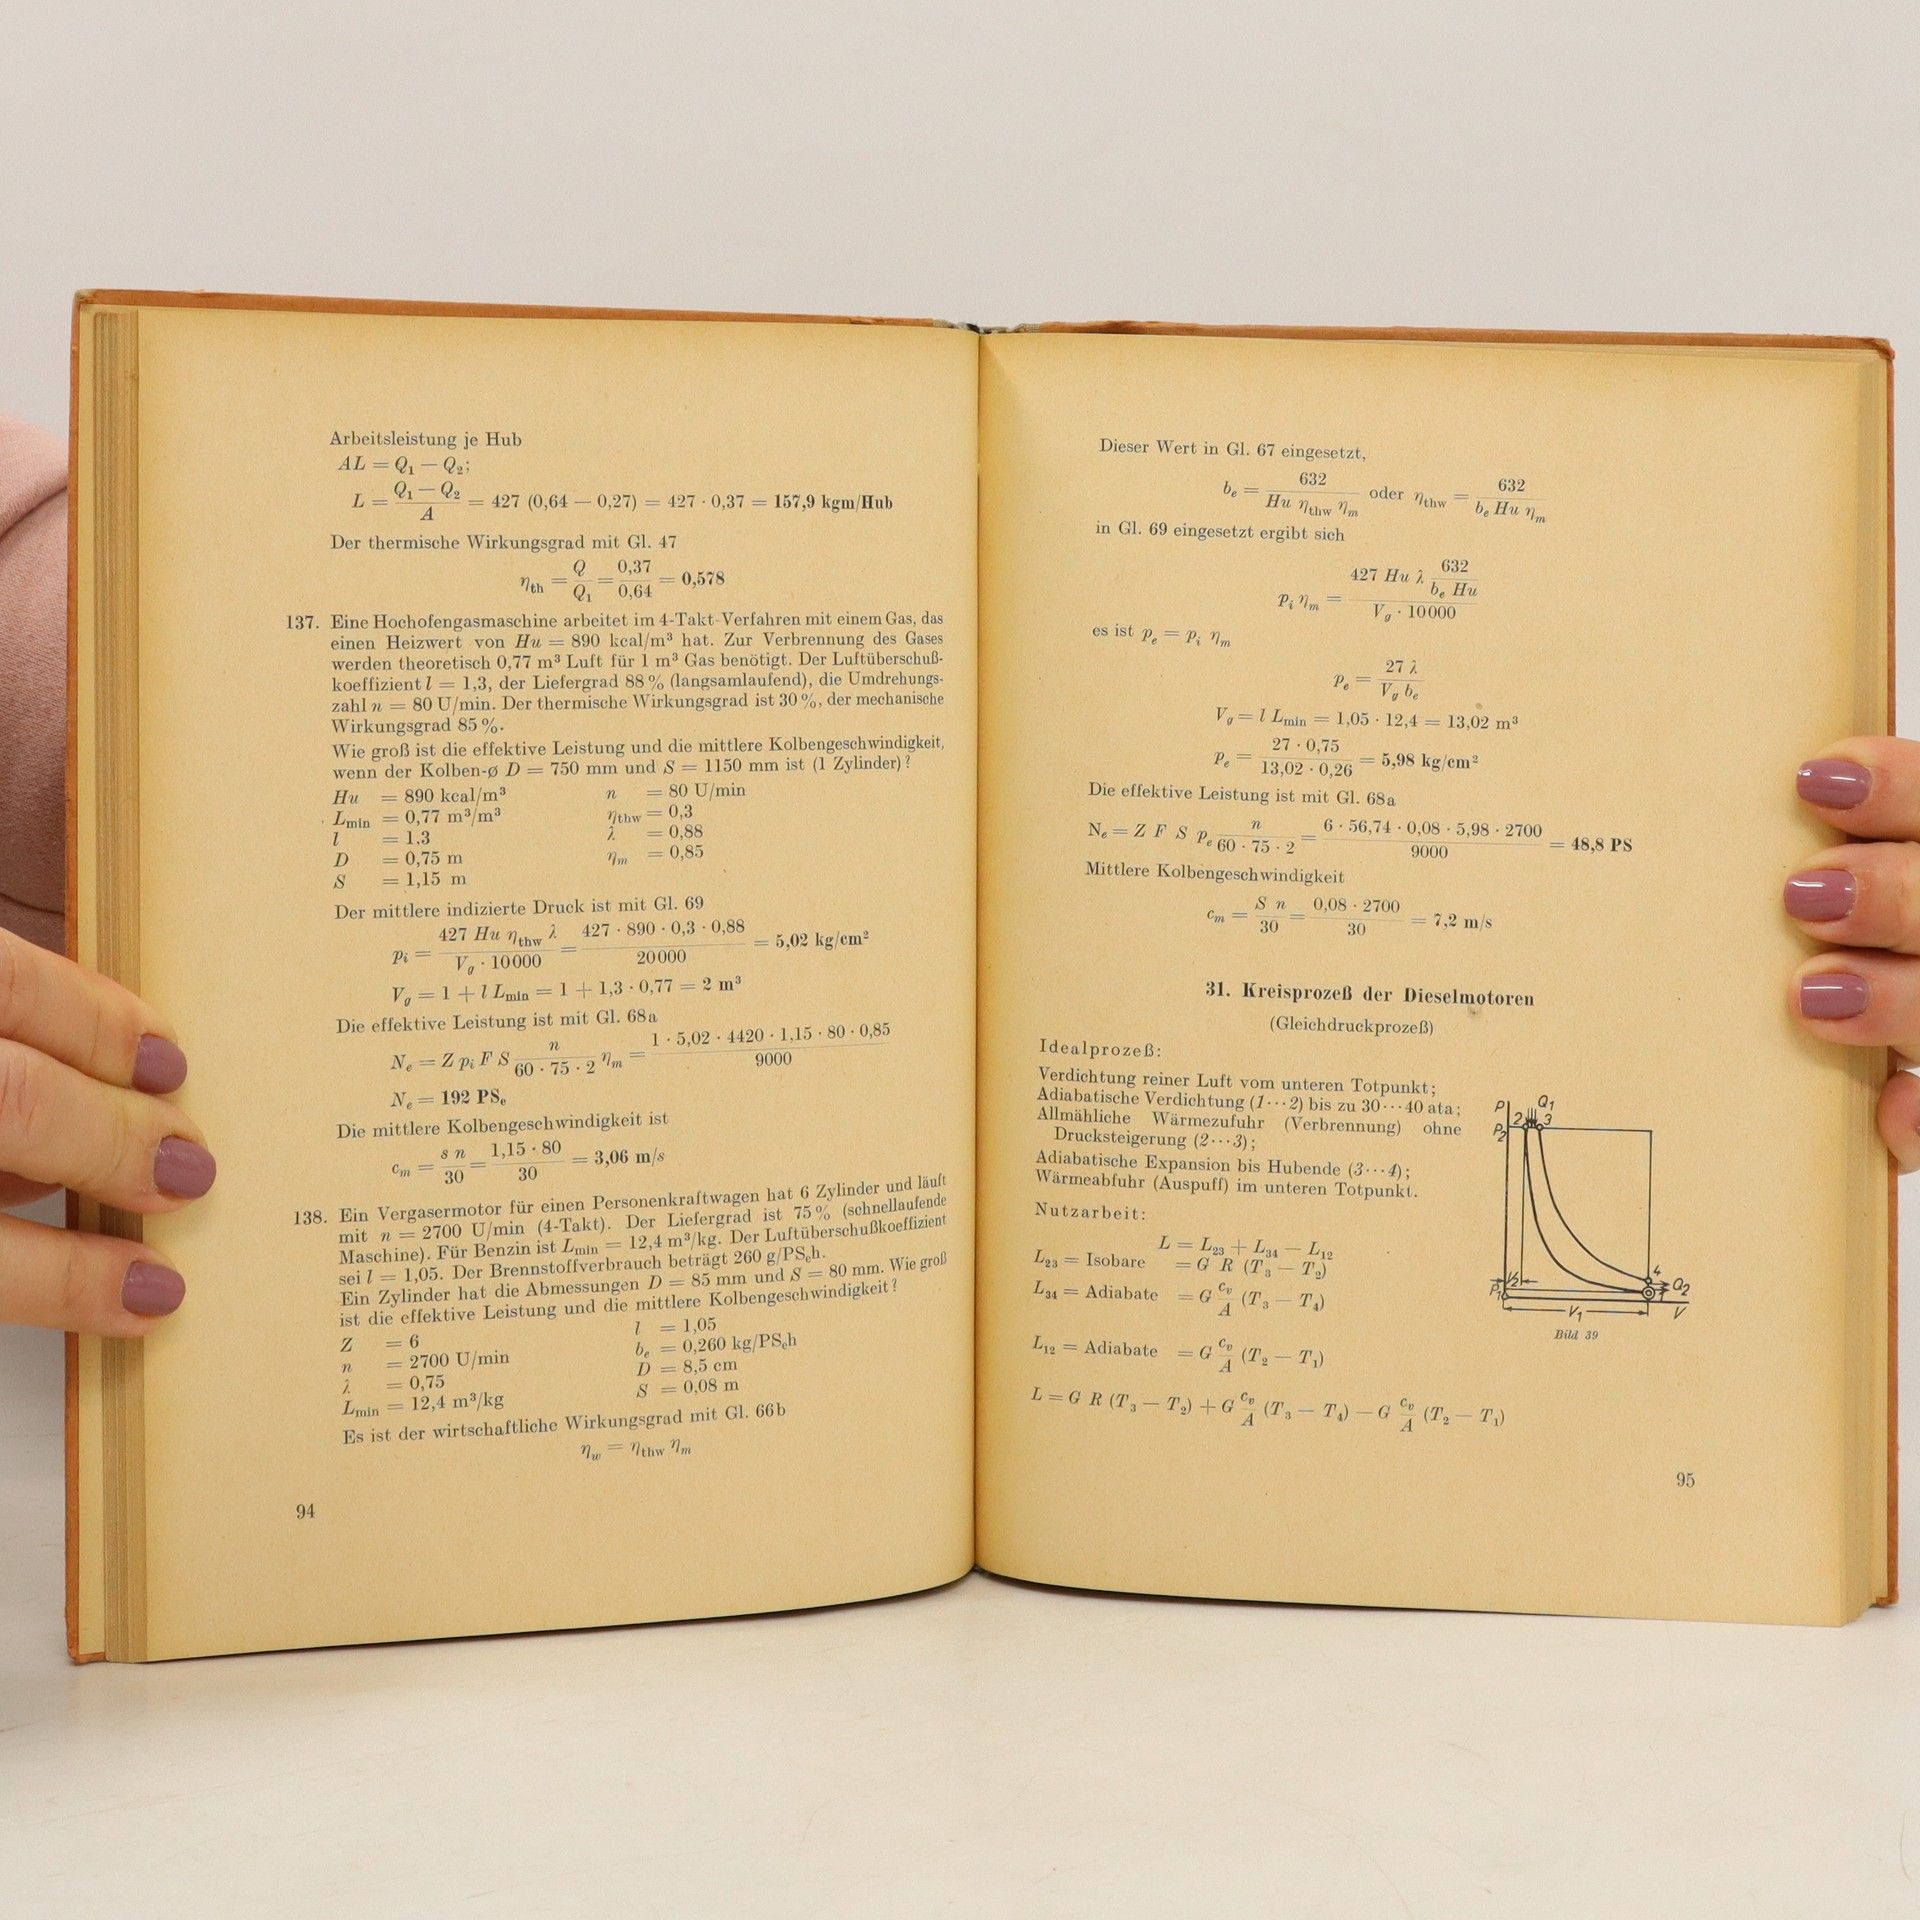 Arbeitsleistung je Hub
AL = Q₁ — Q₂;
L = (Q₁ — Q₂)/A = 427 (0,64 — 0,27) = 427 · 0,37 = 157,9 kgm/Hub
Der thermische Wirkungsgrad mit Gl. 47
η_th = Q/Q₁ = 0,37/0,64 = 0,578
137. Eine Hochofengasmaschine arbeitet im 4-Takt-Verfahren mit einem Gas, das
einen Heizwert von Hu = 890 kcal/m³ hat. Zur Verbrennung des Gases
werden theoretisch 0,77 m³ Luft für 1 m³ Gas benötigt. Der Luftüberschuß-
koeffizient l = 1,3, der Liefergrad 88 % (langsamlaufend), die Umdrehungs-
zahl n = 80 U/min. Der thermische Wirkungsgrad ist 30 %, der mechanische
Wirkungsgrad 85 %.
Wie groß ist die effektive Leistung und die mittlere Kolbengeschwindigkeit,
wenn der Kolben-ø D = 750 mm und S = 1150 mm ist (1 Zylinder)?
Hu = 890 kcal/m³ n = 80 U/min
L_min = 0,77 m³/m³ η_thw = 0,3
l = 1,3 λ = 0,88
D = 0,75 m η_m = 0,85
S = 1,15 m
Der mittlere indizierte Druck ist mit Gl. 69
p_i = (427 Hu η_thw λ)/(V_g · 10000) = (427 · 890 · 0,3 · 0,88)/20000 = 5,02 kg/cm²
V_g = 1 + l L_min = 1 + 1,3 · 0,77 = 2 m³
Die effektive Leistung ist mit Gl. 68a
N_e = Z p_i F S n/(60 · 75 · 2) η_m = (1 · 5,02 · 4420 · 1,15 · 80 · 0,85)/9000
N_e = 192 PS_e
Die mittlere Kolbengeschwindigkeit ist
c_m = (s n)/30 = (1,15 · 80)/30 = 3,06 m/s
138. Ein Vergasermotor für einen Personenkraftwagen hat 6 Zylinder und läuft
mit n = 2700 U/min (4-Takt). Der Liefergrad ist 75 % (schnellaufende
Maschine). Für Benzin ist L_min = 12,4 m³/kg. Der Luftüberschußkoeffizient
sei l = 1,05. Der Brennstoffverbrauch beträgt 260 g/PS_eh.
Ein Zylinder hat die Abmessungen D = 85 mm und S = 80 mm. Wie groß
ist die effektive Leistung und die mittlere Kolbengeschwindigkeit?
Z = 6 l = 1,05
n = 2700 U/min b_e = 0,260 kg/PS_eh
λ = 0,75 D = 8,5 cm
L_min = 12,4 m³/kg S = 0,08 m
Es ist der wirtschaftliche Wirkungsgrad mit Gl. 66b
η_w = η_thw η_m
94
Dieser Wert in Gl. 67 eingesetzt,
b_e = 632/(Hu η_thw η_m) oder η_thw = 632/(b_e Hu η_m)
in Gl. 69 eingesetzt ergibt sich
p_i η_m = (427 Hu λ 632/(b_e Hu))/(V_g · 10000)
es ist p_e = p_i η_m
p_e = (27 λ)/(V_g b_e)
V_g = l L_min = 1,05 · 12,4 = 13,02 m³
p_e = (27 · 0,75)/(13,02 · 0,26) = 5,98 kg/cm²
Die effektive Leistung ist mit Gl. 68a
N_e = Z F S p_e n/(60 · 75 · 2) = (6 · 56,74 · 0,08 · 5,98 · 2700)/9000 = 48,8 PS
Mittlere Kolbengeschwindigkeit
c_m = (S n)/30 = (0,08 · 2700)/30 = 7,2 m/s
31. Kreisprozeß der Dieselmotoren
(Gleichdruckprozeß)
Idealprozeß:
Verdichtung reiner Luft vom unteren Totpunkt;
Adiabatische Verdichtung (1···2) bis zu 30···40 ata;
Allmähliche Wärmezufuhr (Verbrennung) ohne
Drucksteigerung (2···3);
Adiabatische Expansion bis Hubende (3···4);
Wärmeabfuhr (Auspuff) im unteren Totpunkt.
P Q₁
2 3
P₂
4
V₂ Q₂
P₁ 1
V₁ V
Bild 39
Nutzarbeit:
L = L₂₃ + L₃₄ — L₁₂
L₂₃ = Isobare = G R (T₃ — T₂)
L₃₄ = Adiabate = G c_v/A (T₃ — T₄)
L₁₂ = Adiabate = G c_v/A (T₂ — T₁)
L = G R (T₃ — T₂) + G c_v/A (T₃ — T₄) — G c_v/A (T₂ — T₁)
95